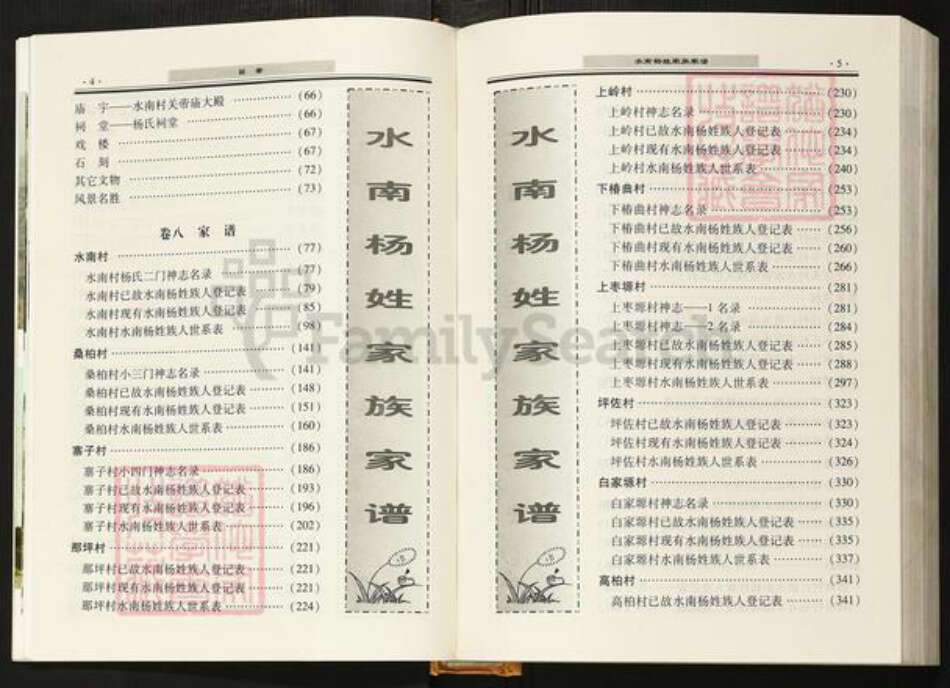 ·4·
目 录
庙 宇——水南村关帝庙大殿 ……………(66)
祠 堂——杨氏祠堂 ……………(66)
戏 楼 ……………(67)
石 刻 ……………(67)
其它文物 ……………(72)
风景名胜 ……………(73)
卷八 家 谱
水南村 ……………(77)
水南村杨氏二门神志名录 ……………(77)
水南村已故水南杨姓族人登记表 ………(79)
水南村现有水南杨姓族人登记表 ………(85)
水南村水南杨姓族人世系表 ………(98)
桑柏村 ……………(141)
桑柏村小三门神志名录 ……………(141)
桑柏村已故水南杨姓族人登记表 ………(148)
桑柏村现有水南杨姓族人登记表 ………(151)
桑柏村水南杨姓族人世系表 ………(160)
寨子村 ……………(186)
寨子村小四门神志名录 ……………(186)
寨子村已故水南杨姓族人登记表 ………(193)
寨子村现有水南杨姓族人登记表 ………(196)
寨子村水南杨姓族人世系表 ………(202)
那坪村 ……………(221)
那坪村已故水南杨姓族人登记表 ………(221)
那坪村现有水南杨姓族人登记表 ………(221)
那坪村水南杨姓族人世系表 ………(224)
水南杨姓家族家谱
水南杨姓家族家谱
·5·
水南杨姓家族家谱
上岭村 ……………(230)
上岭村神志名录 ……………(230)
上岭村已故水南杨姓族人登记表 ………(234)
上岭村现有水南杨姓族人登记表 ………(234)
上岭村水南杨姓族人世系表 ………(240)
下椿曲村 ……………(253)
下椿曲村神志名录 ……………(253)
下椿曲村已故水南杨姓族人登记表 ………(256)
下椿曲村现有水南杨姓族人登记表 ………(260)
下椿曲村水南杨姓族人世系表 ………(266)
上枣塬村 ……………(281)
上枣塬村神志——1名录 ……………(281)
上枣塬村神志——2名录 ……………(284)
上枣塬村已故水南杨姓族人登记表 ………(285)
上枣塬村现有水南杨姓族人登记表 ………(288)
上枣塬村水南杨姓族人世系表 ………(297)
坪佐村 ……………(323)
坪佐村已故水南杨姓族人登记表 ………(323)
坪佐村现有水南杨姓族人登记表 ………(324)
坪佐村水南杨姓族人世系表 ………(326)
白家塬村 ……………(330)
白家塬村神志名录 ……………(330)
白家塬村已故水南杨姓族人登记表 ………(335)
白家塬村现有水南杨姓族人登记表 ………(335)
白家塬村水南杨姓族人世系表 ………(337)
高柏村 ……………(341)
高柏村已故水南杨姓族人登记表 ………(341)
FamilySearch